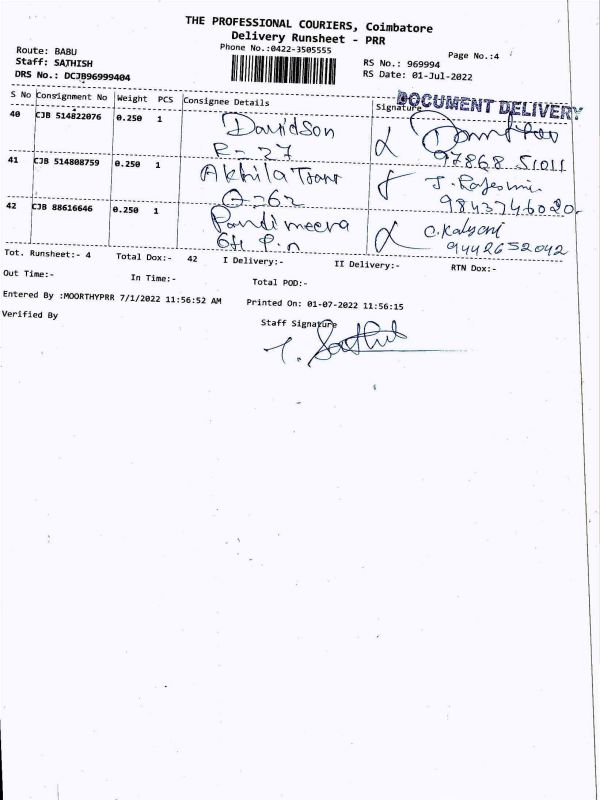 THE PROFESSIONAL COURIERS, Coimbatore
Delivery Runsheet - PRR
Phone No.:0422-3505555
Page No.:4
Route: BABU
Staff: SATHISH
DRS No.: DCJB96999404
RS No.: 969994
RS Date: 01-Jul-2022
DOCUMENT DELIVERY
S No Consignment No Weight PCS Consignee Details Signature
40 CJB 514822076 0.250 1 Davidson
97868 51011
41 CJB 514808759 0.250 1 Akhila
9843746020
42 CJB 88616646 0.250 1 Pandimeera
C. Kalyani
9442652042
Tot. Runsheet:- 4 Total Dox:- 42 I Delivery:- II Delivery:- RTN Dox:-
Out Time:- In Time:- Total POD:-
Entered By :MOORTHYPRR 7/1/2022 11:56:52 AM Printed On: 01-07-2022 11:56:15
Verified By Staff Signature